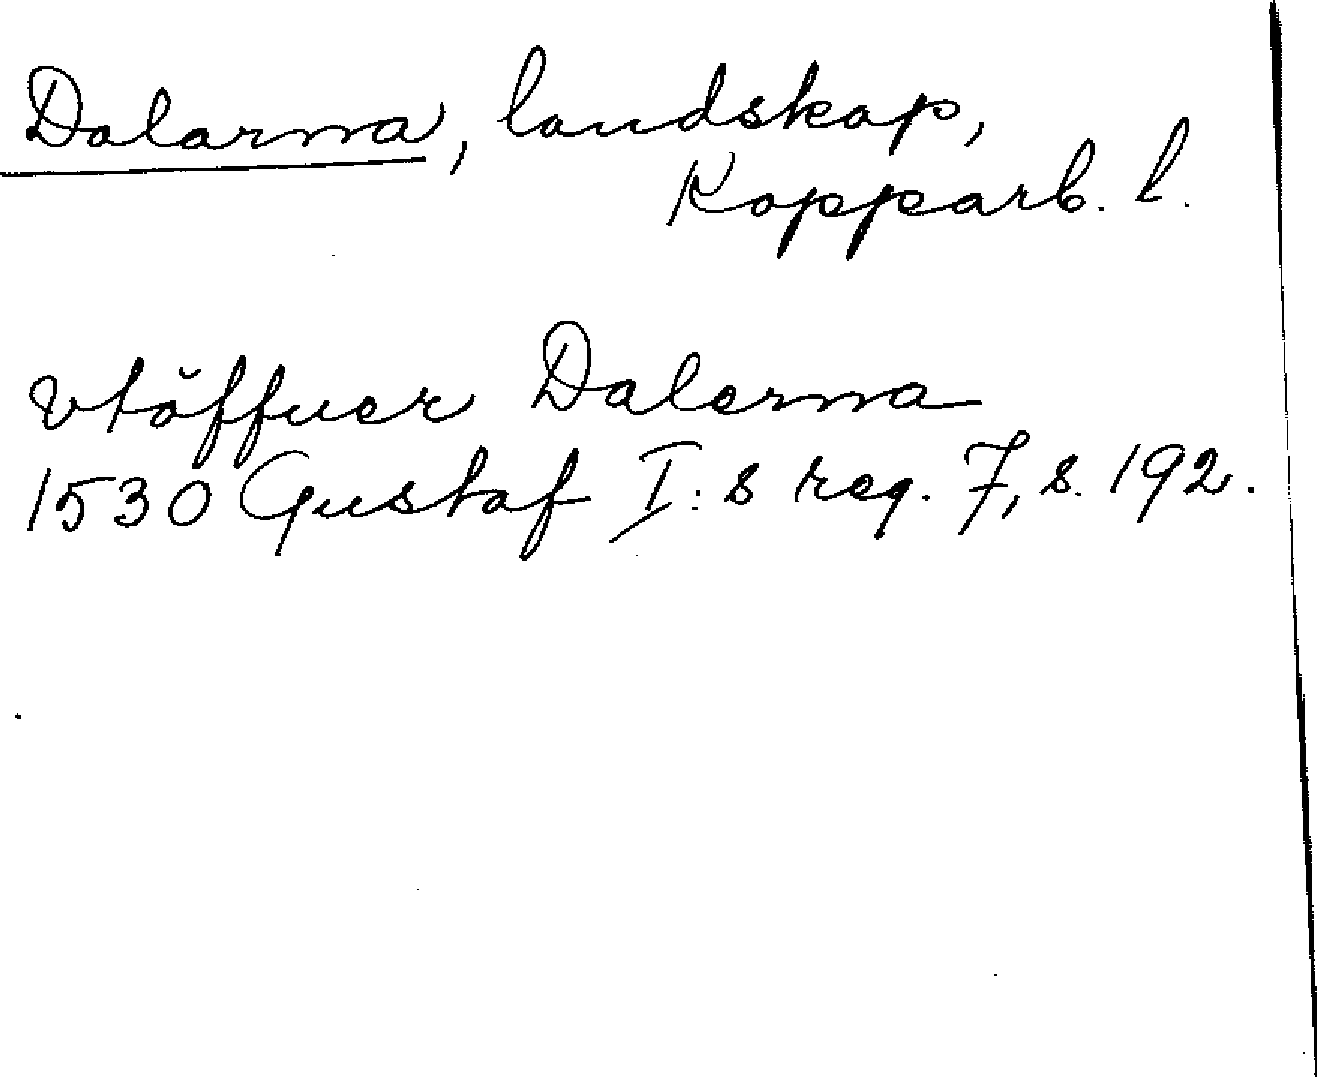 Dalarna, landskap,
Kopparb. l.
vtöffuer Dalerna
1530 Gustaf I:s reg. 7, s. 192.